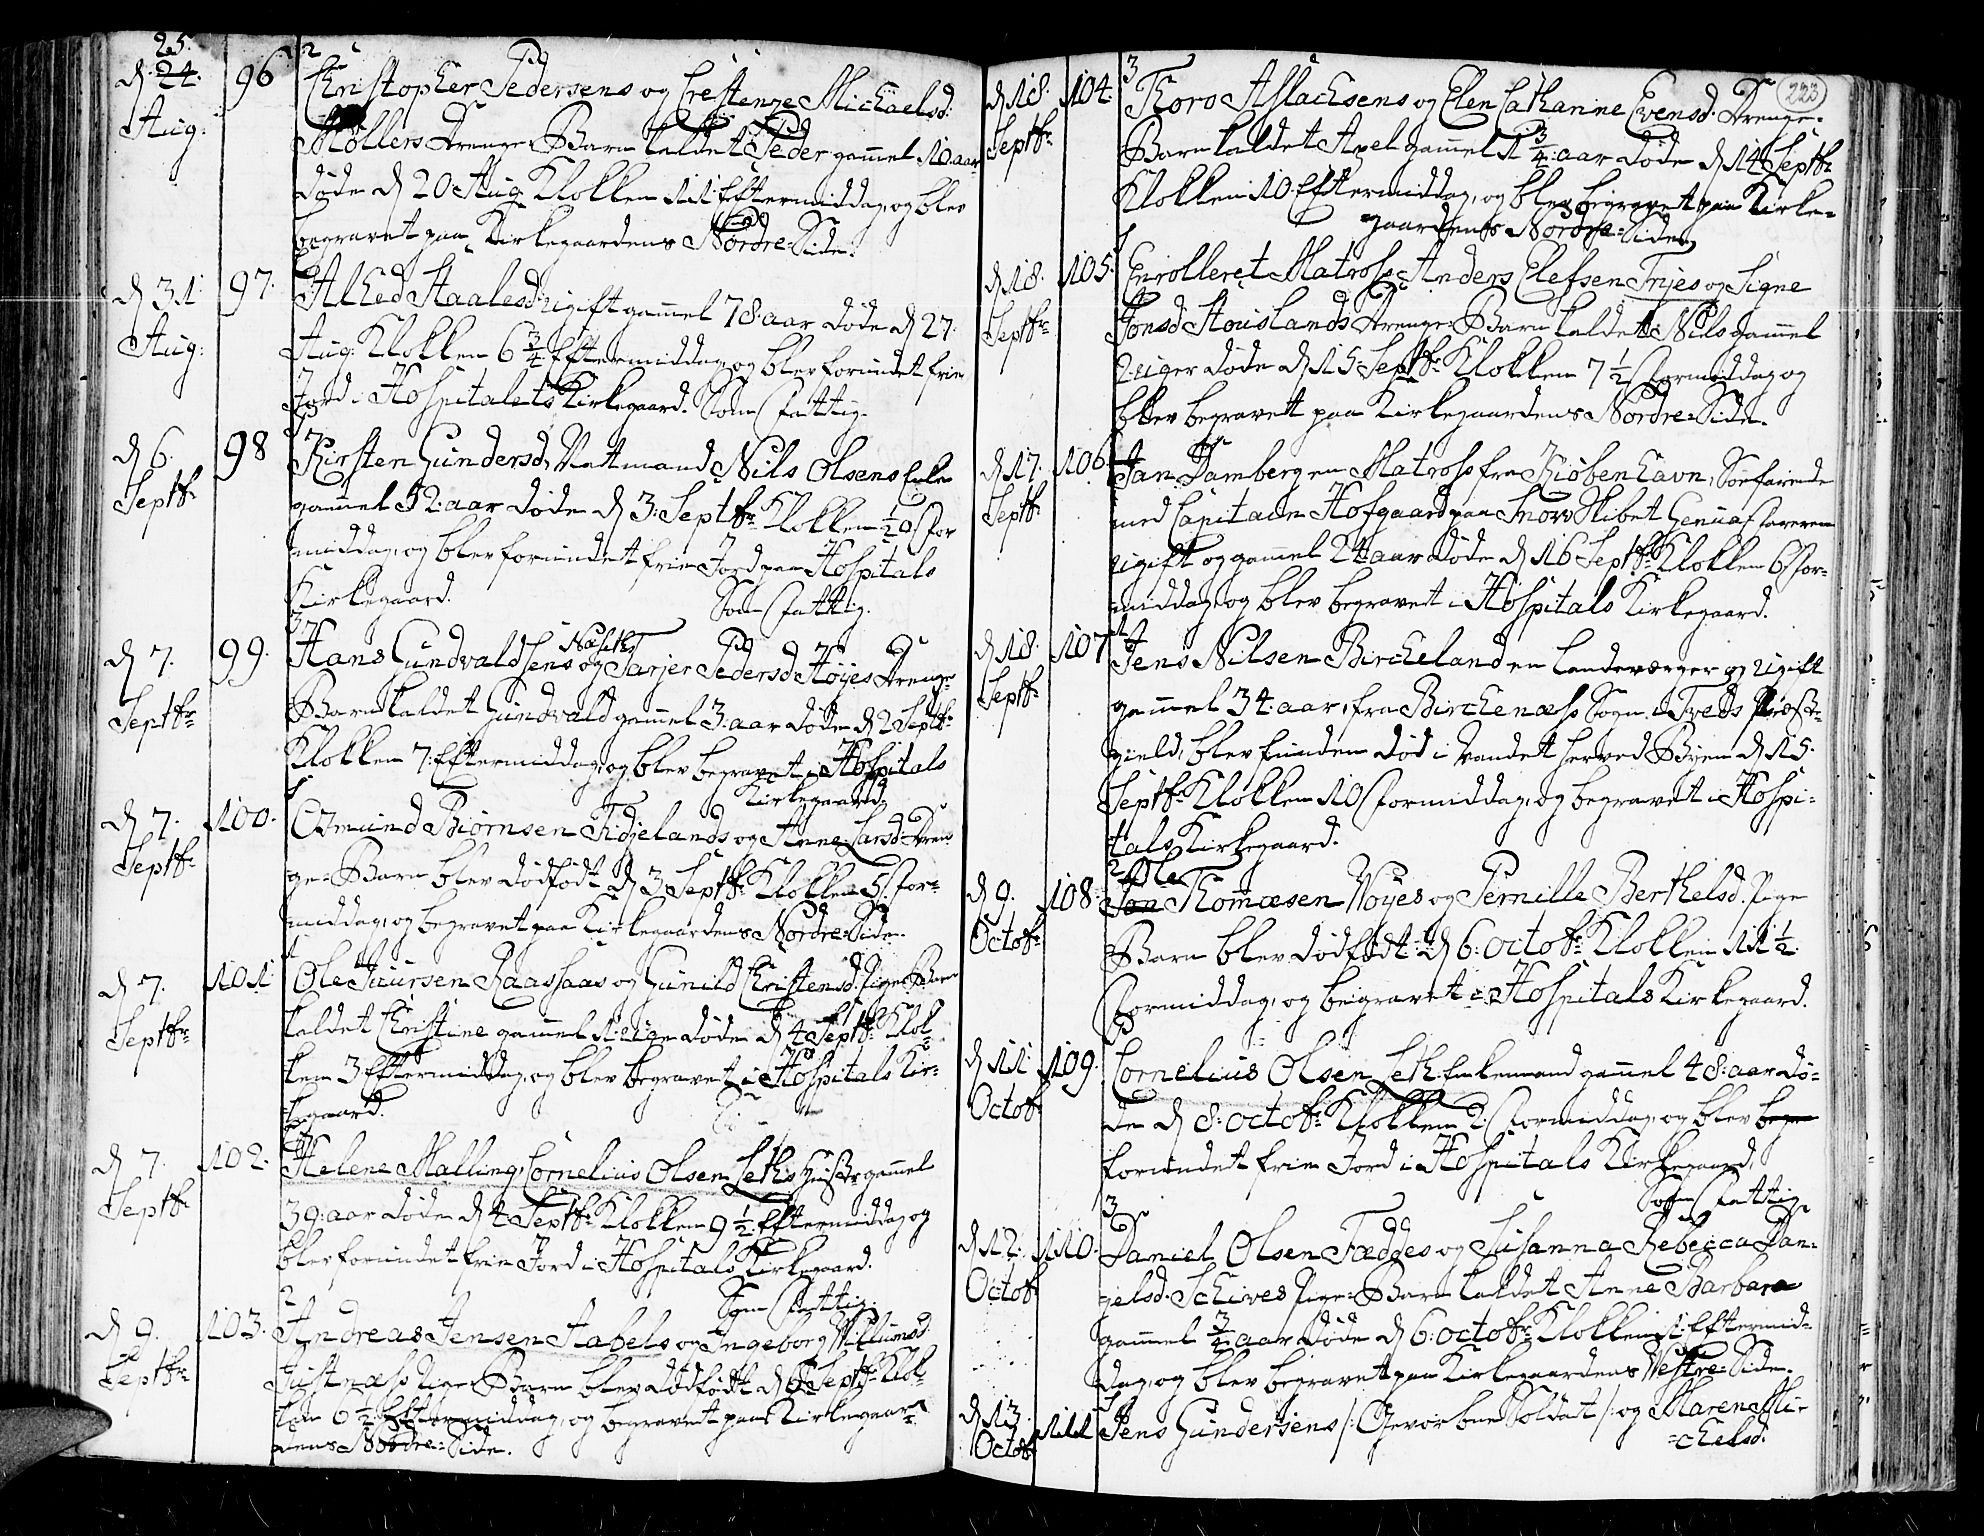 25.
d. 24. 96 Christopher Pedersens og Crestenze Michaelsd:
Aug: Møllers Drenge Barn kaldet Peder gamel 10 aar
døde d 20 Aug: Klokken 11 Eftermiddag, og blev
begravet paa Kirkegaardens Nordre-Side.
d 31 97. Alhed Staalesd: ugift gamel 78 aar døde d 27.
Aug: Aug: Klokken 6 3/4 Eftermiddag, og blev forundet frie
Jord i Hospitalets Kirkegaard. Som Fattig.
d 6. 98 Kirsten Gundersd, Natmand Nils Olsens Enke
Septbr gamel 52 aar døde d 3: Septbr Klokken 10 1/2 For
middag, og blev forundet frie Jord paa Hospitals
Kirkegaard. Som Fattig.
d 7. 99. Hans Gundvaldsens og Tarjer Pedersd Høyes Drenge
Septbr Barn kaldet Gundvald gamel 3: aar døde d 2 Septbr
Klokken 7: Eftermiddag, og blev begravet i Hospitals
Kirkegaard
d 7. 100. Osmund Biørnsen Fidjelands og Anne Larsd: Dren
Septbr ge-Barn blev dødfødt d 3 Septbr Klokken 5 For-
middag, og begravet paa Kirkegaardens Nordre-Side.
d 7. 101 Ole Siursen Raassaas og Gunild Christensd: Pige-Barn
Septbr kaldet Christine gamel 1 uge døde d 4 Septbr Klok-
ken 3 Eftermiddag, og blev begravet i Hospitals Kir-
kegaard.
d 7. 102. Helene Malling, Cornelius Olsen Leths Hustr gamel
Septbr 39: aar døde d 4 Septbr Klokken 9 1/2 Eftermiddag og
blev forundet frie Jord i Hospitals Kirkegaard.
Som Fattig.
d 9. 103. Andreas Jensen Aabels og Ingeborg Willumsd.
Septbr Justnæss Pige Barn blev dødfødt d 6 Septbr Klok-
ken 6 1/2 Eftermiddag, og begravet paa Kirkegaar-
dens Nordre-Side.
223
d 18. 104. Thoro Asslachsens og Elen Cathanine Evensd. Drenge-
Septbr Barn kaldet Axel gamel 1 3/4 aar døde d 14 Septbr
Klokken 10 Eftermiddag, og blev begravet paa Kirke-
gaardens Nordre-Side
d 18. 105. Enrolleret Matross Anders Elefsen Trijes og Signe
Septbr Jonsd Houslands Drenge Barn kaldet Nils gamel
2 uger døde d 15 Septbr Klokken 7 1/2 Formiddag og
blev begravet paa Kirkegaardens Nordre-Side.
d 17. 106 Jan Damberg en Matross fra Kiøbenhavn, Søefarende
Septbr med Capitain Hofgaard paa Snow Skibet Genua
ugift og gamel 24 aar døde d 16 Septbr Klokken 6 For-
middag, og blev begravet i Hospitals Kirkegaard.
d 18. 107 Jens Nilsen Bircheland en Landeværger og ugift
Septbr gamel 34: aar, fra Birchenæss Sogn i Tveds Præste-
gield, blev funden død i Vandet herved Byen d 15.
Septbr Klokken 10 Formiddag, og begravet i Hospi-
tals Kirkegaard.
Ole
d 9. 108: Jon Thomæsen Woyes og Pernille Berthelsd. Pige
Octobr Barn blev dødfødt d 6: Octobr Klokken 11 1/2
Formiddag, og begravet i Hospitals Kirkegaard.
d 11 109. Cornelius Olsen Leth Enkemand gamel 48: aar dø-
Octobr de d 8: Octobr Klokken 2: Formiddag, og blev begr
forundet frie Jord i Hospitals Kirkegaard.
Som Fattig
d 12. 110. Daniel Olsen Fædges og Susanna Rebecca Dan-
Octobr ielsd. Schives Pige-Barn kaldet Anne Barbara
gamel 3/4 aar døde d 6: Octobr Klokken 1 Eftermid-
dag, og blev begravet paa Kirkegaardens Vestre-Side.
d 13. 111 Jens Gundersens /: Gevorben Soldat :/ og Maren Mi-
Octobr chelsd: